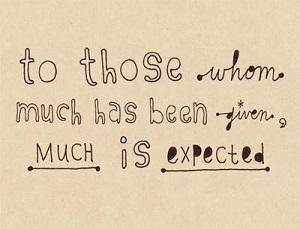 to those whom
much has been given,
MUCH is expected